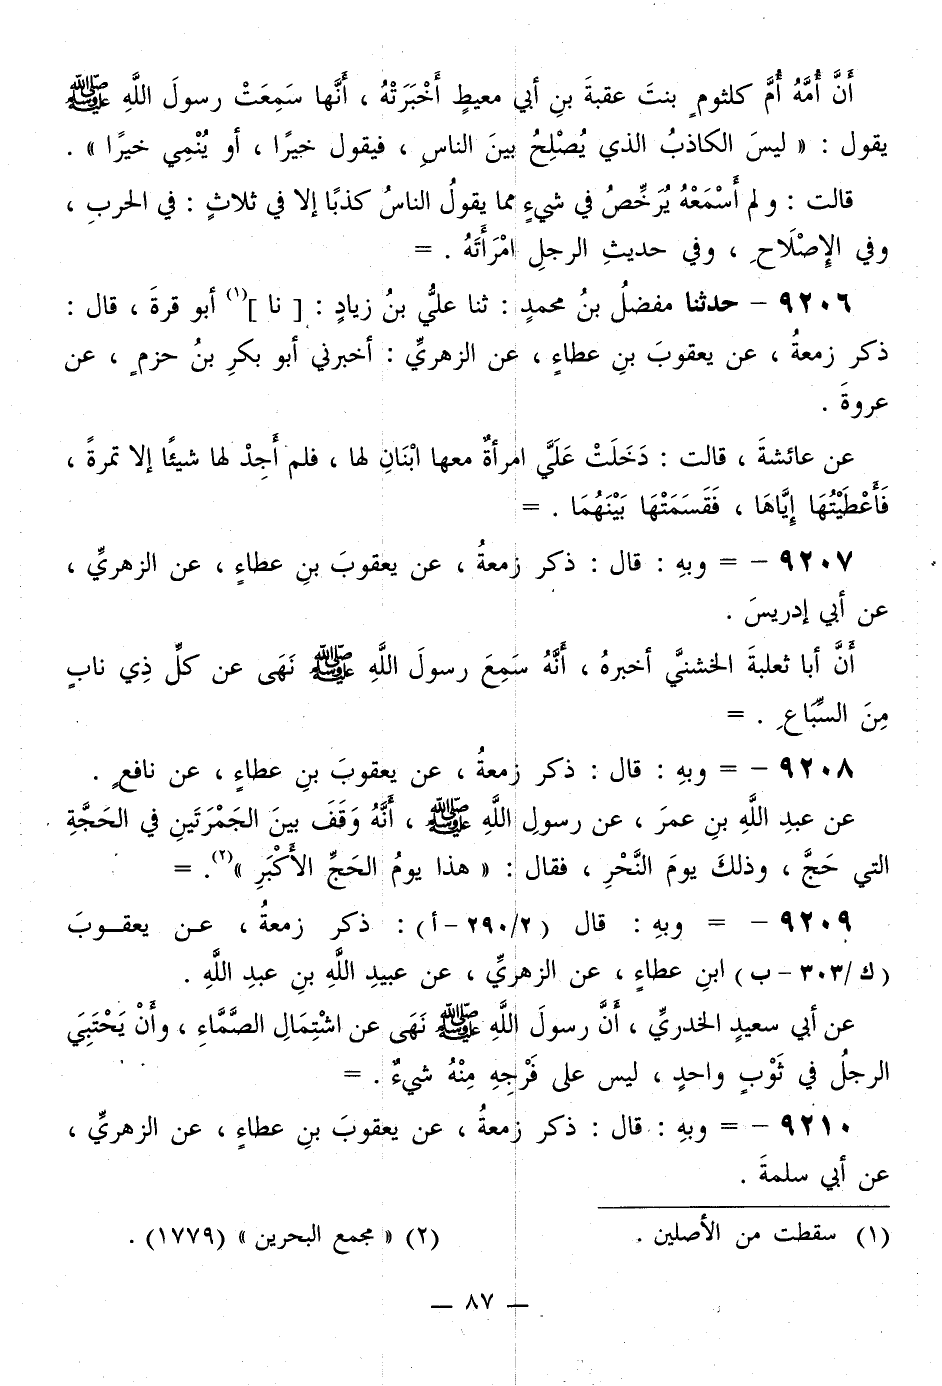 أَنَّ أُمَّهُ أُمَّ كلثومٍ بنتَ عقبةَ بنِ أبي معيطٍ أَخْبَرَتْهُ ، أَنَّها سَمِعَتْ رسولَ اللَّهِ ﷺ
يقول : « ليسَ الكاذبُ الذي يُصْلِحُ بينَ الناسِ ، فيقول خيرًا ، أو يُنْمِي خيرًا » .
قالت : ولم أَسْمَعْهُ يُرَخِّصُ في شيءٍ مما يقولُ الناسُ كذبًا إلا في ثلاثٍ : في الحربِ ،
وفي الإِصْلَاحِ ، وفي حديثِ الرجلِ امْرَأَتَهُ . =
٩٢٠٦ – حدثنا مفضلُ بنُ محمدٍ : ثنا عليُّ بنُ زيادٍ : [ نا ](١) أبو قرةَ ، قال :
ذكر زمعةُ ، عن يعقوبَ بنِ عطاءٍ ، عن الزهريِّ : أخبرني أبو بكرِ بنُ حزمٍ ، عن
عروةَ .
عن عائشةَ ، قالت : دَخَلَتْ عَلَيَّ امرأةٌ معها ابْنَانِ لها ، فلم أَجِدْ لها شيئًا إلا تمرةً ،
فَأَعْطَيْتُهَا إِيَّاهَا ، فَقَسَمَتْهَا بَيْنَهُمَا . =
٩٢٠٧ – = وبهِ : قال : ذكر زمعةُ ، عن يعقوبَ بنِ عطاءٍ ، عن الزهريِّ ،
عن أبي إدريسَ .
أَنَّ أبا ثعلبةَ الخشنيَّ أخبرهُ ، أَنَّهُ سَمِعَ رسولَ اللَّهِ ﷺ نَهَى عن كلِّ ذِي نابٍ
مِنَ السِّبَاعِ . =
٩٢٠٨ – = وبهِ : قال : ذكر زمعةُ ، عن يعقوبَ بنِ عطاءٍ ، عن نافعٍ .
عن عبدِ اللَّهِ بنِ عمرَ ، عن رسولِ اللَّهِ ﷺ ، أَنَّهُ وَقَفَ بينَ الجَمْرَتَينِ في الحَجَّةِ
التي حَجَّ ، وذلكَ يومَ النَّحْرِ ، فقال : « هذا يومُ الحَجِّ الأَكْبَرِ »(٢). =
٩٢٠٩ – = وبهِ : قال (٢/٢٩٠ – أ) : ذكر زمعةُ ، عن يعقوبَ
(ك/٣٠٣ – ب) ابنِ عطاءٍ ، عن الزهريِّ ، عن عبيدِ اللَّهِ بنِ عبدِ اللَّهِ .
عن أبي سعيدٍ الخدريِّ ، أَنَّ رسولَ اللَّهِ ﷺ نَهَى عن اشْتِمَالِ الصَّمَّاءِ ، وأَنْ يَحْتَبِيَ
الرجلُ في ثَوْبٍ واحدٍ ، ليس على فَرْجِهِ مِنْهُ شيءٌ . =
٩٢١٠ – = وبهِ : قال : ذكر زمعةُ ، عن يعقوبَ بنِ عطاءٍ ، عن الزهريِّ ،
عن أبي سلمةَ .
(١) سقطت من الأصلين . (٢) « مجمع البحرين » (١٧٧٩) .
— ٨٧ —